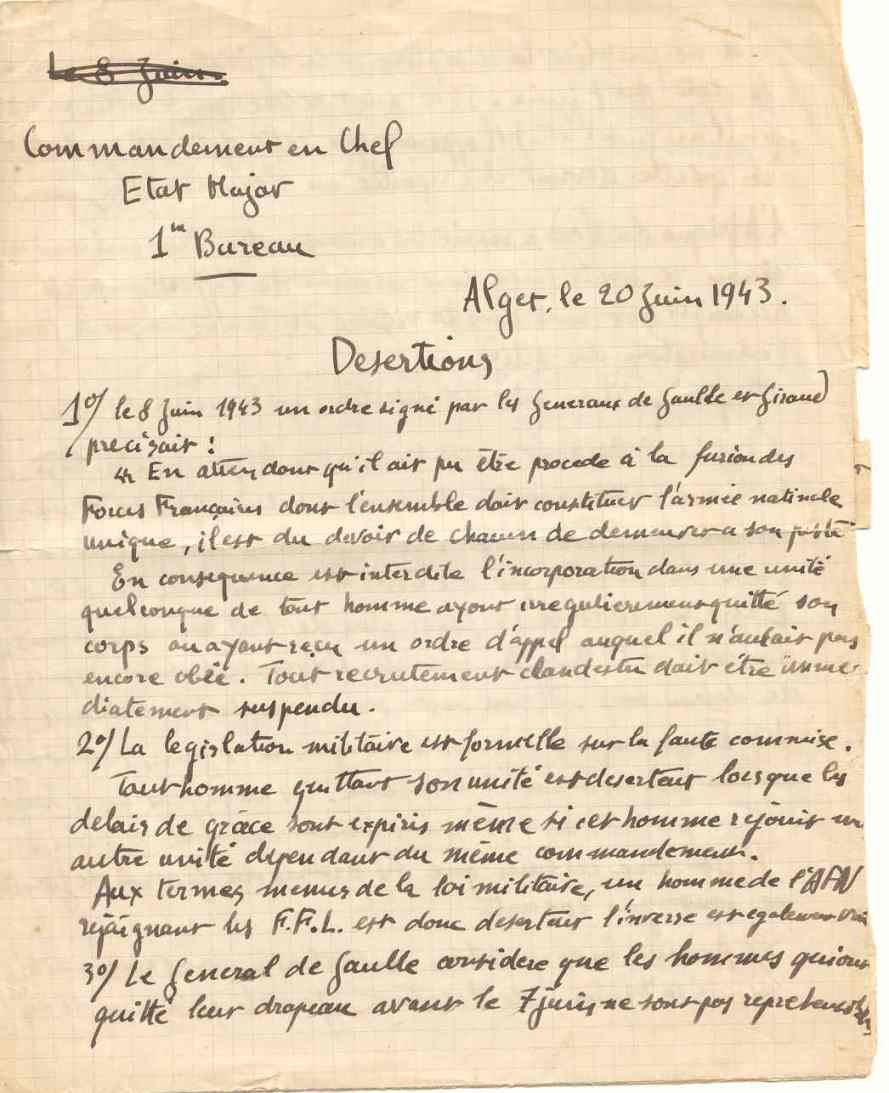 Le 8 Juin.
Commandement en Chef
Etat Major
1er Bureau
Alger, le 20 Juin 1943.
Desertions
1°/ le 8 Juin 1943 un ordre signé par les Generaux de Gaulle et Giraud
precisait :
" En attendant qu'il ait pu être procede à la fusion des
Forces Françaises dont l'ensemble doit constituer l'armée nationale
unique, il est du devoir de chacun de demeurer a son poste
En consequence est interdite l'incorporation dans une unité
quelconque de tout homme ayant irregulierement quitté son
corps ou ayant reçu un ordre d'appel auquel il n'aurait pas
encore obéi. Tout recrutement clandestin doit être imme
diatement suspendu.
2°/ La legislation militaire est formelle sur la faute commise.
Tout homme quittant son unité est deserteur lorsque les
delais de grâce sont expirés même si cet homme rejoint un
autre unité dependant du même commandement.
Aux termes memes de la loi militaire, un homme de l'AFN
rejoignant les F.F.L. est donc deserteur l'inverse est egalement vrai
3°/ Le General de Gaulle considere que les hommes qui ont
quitté leur drapeau avant le 7 juin ne sont pas reprehensibles